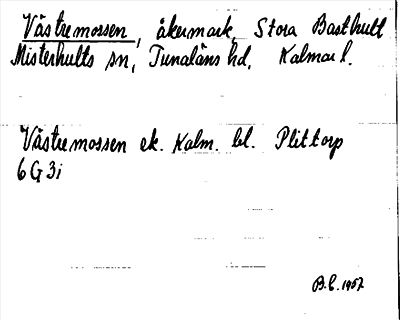 Västremossen, åkermark, Stora Basthult
Misterhults sn, Tunaläns hd, Kalmar l.
Västremossen ek. Kalm. bl. Plittorp
6G3i
B.E. 1957